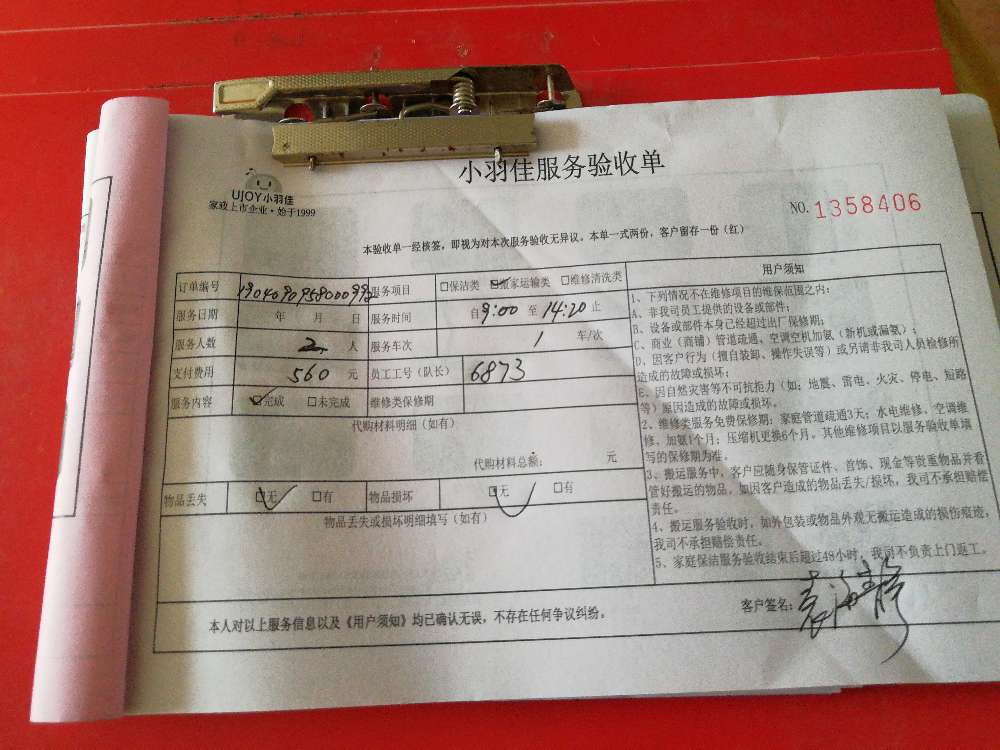 小羽佳服务验收单
UJOY小羽佳
家政上市企业·始于1999
NO. 1358406
本验收单一经核签，即视为对本次服务验收无异议。本单一式两份，客户留存一份（红）
订单编号 服务项目 □保洁类 □搬家运输类 □维修清洗类
服务日期 年 月 日 服务时间 自9:00 至 14:20 止
服务人数 2 人 服务车次 1 车/次
支付费用 560 元 员工工号（队长） 6873
服务内容 ☑完成 □未完成 维修类保修期
代购材料明细（如有）
代购材料总额： 元
物品丢失 ☑无 □有 物品损坏 ☑无 □有
物品丢失或损坏明细填写（如有）
用户须知
1、下列情况不在维修项目的维保范围之内：
A、非我司员工提供的设备或部件；
B、设备或部件本身已经超过出厂保修期；
C、商业（商铺）管道疏通，空调空机加氨（新机或漏氨）；
D、因客户行为（擅自装卸、操作失误等）或另请非我司人员检修所
造成的故障或损坏；
E、因自然灾害等不可抗拒力（如：地震、雷电、火灾、停电、短路
等）原因造成的故障或损坏。
2、维修类服务免费保修期：家庭管道疏通3天；水电维修、空调维
修、加氨1个月；压缩机更换6个月。其他维修项目以服务验收单填
写的保修期为准。
3、搬运服务中，客户应随身保管证件、首饰、现金等贵重物品并看
管好搬运的物品，如因客户造成的物品丢失/损坏，我司不承担赔偿
责任。
4、搬运服务验收时，如外包装或物品外观无搬运造成的损伤痕迹，
我司不承担赔偿责任。
5、家庭保洁服务验收结束后超过48小时，我司不负责上门返工。
本人对以上服务信息以及《用户须知》均已确认无误，不存在任何争议纠纷。
客户签名：